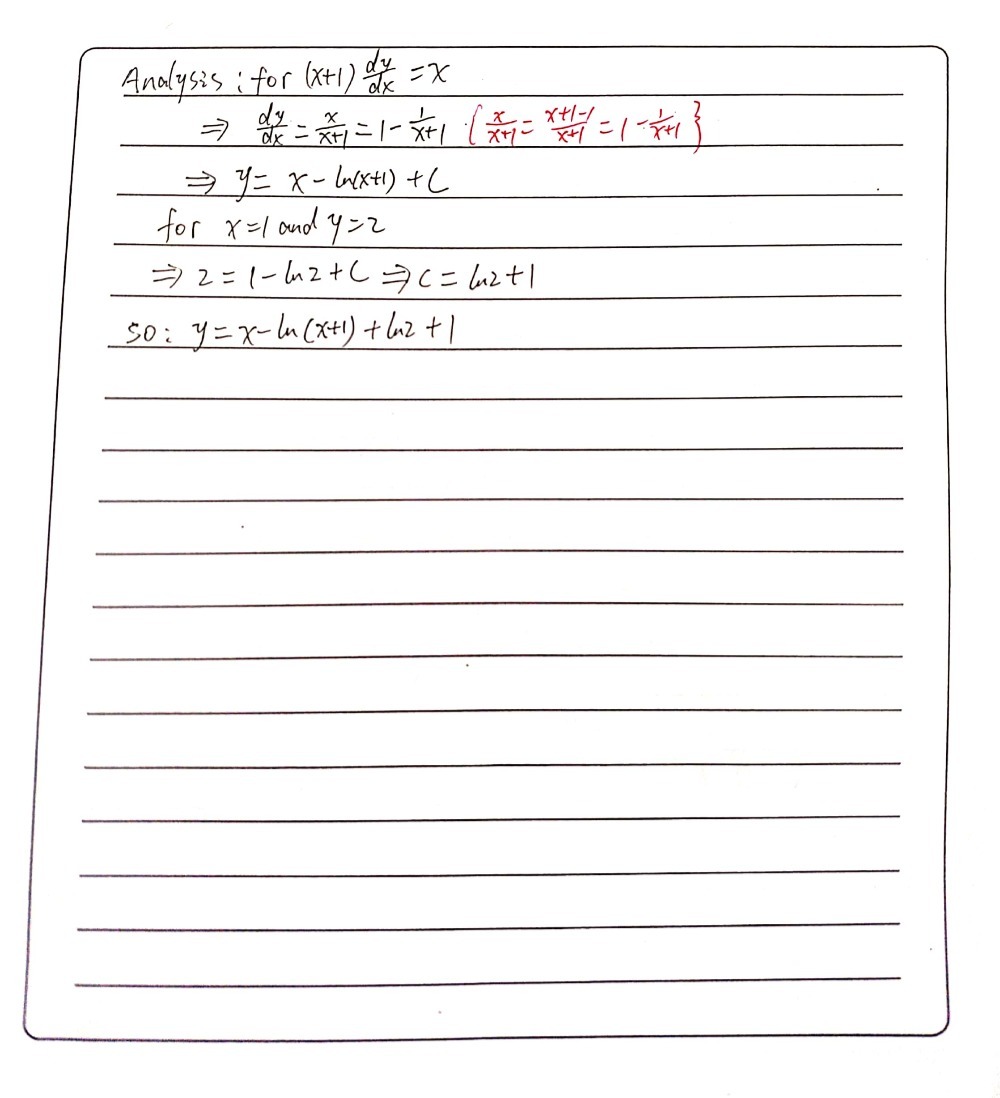 Analysis: for (x+1) dy/dx = x
⇒ dy/dx = x/x+1 = 1 - 1/x+1 { x/x+1 = x+1-1/x+1 = 1 - 1/x+1 }
⇒ y = x - ln(x+1) + C
for x=1 and y=2
⇒ 2 = 1 - ln2 + C ⇒ C = ln2+1
so: y = x - ln(x+1) + ln2 + 1